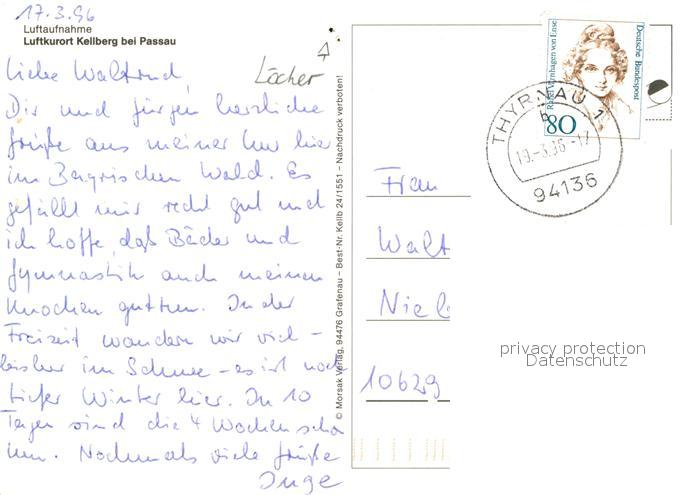 17.3.96
Luftaufnahme
Luftkurort Kellberg bei Passau
Löcher
Liebe Waltraud,
Dir und Jürgen herzliche
Grüße aus meiner Kur hier
im Bayrischen Wald. Es
gefällt mir recht gut und
ich hoffe, daß Bäder und
Gymnastik auch meinen
Knochen guttun. In der
Freizeit wandern wir viel -
bisher im Schnee - es ist noch
tiefer Winter hier. In 10
Tagen sind die 4 Wochen scho
hin. Nochmals viele Grüße
Inge
© Morsak Verlag, 94476 Grafenau – Best-Nr. Kellb 24/1551 – Nachdruck verboten!
Rahel Varnhagen von Ense
Deutsche Bundespost
80
THYRNAU 1
b
19.-3.96-17
94136
Frau
Walt
Niel
10629
privacy protection
Datenschutz